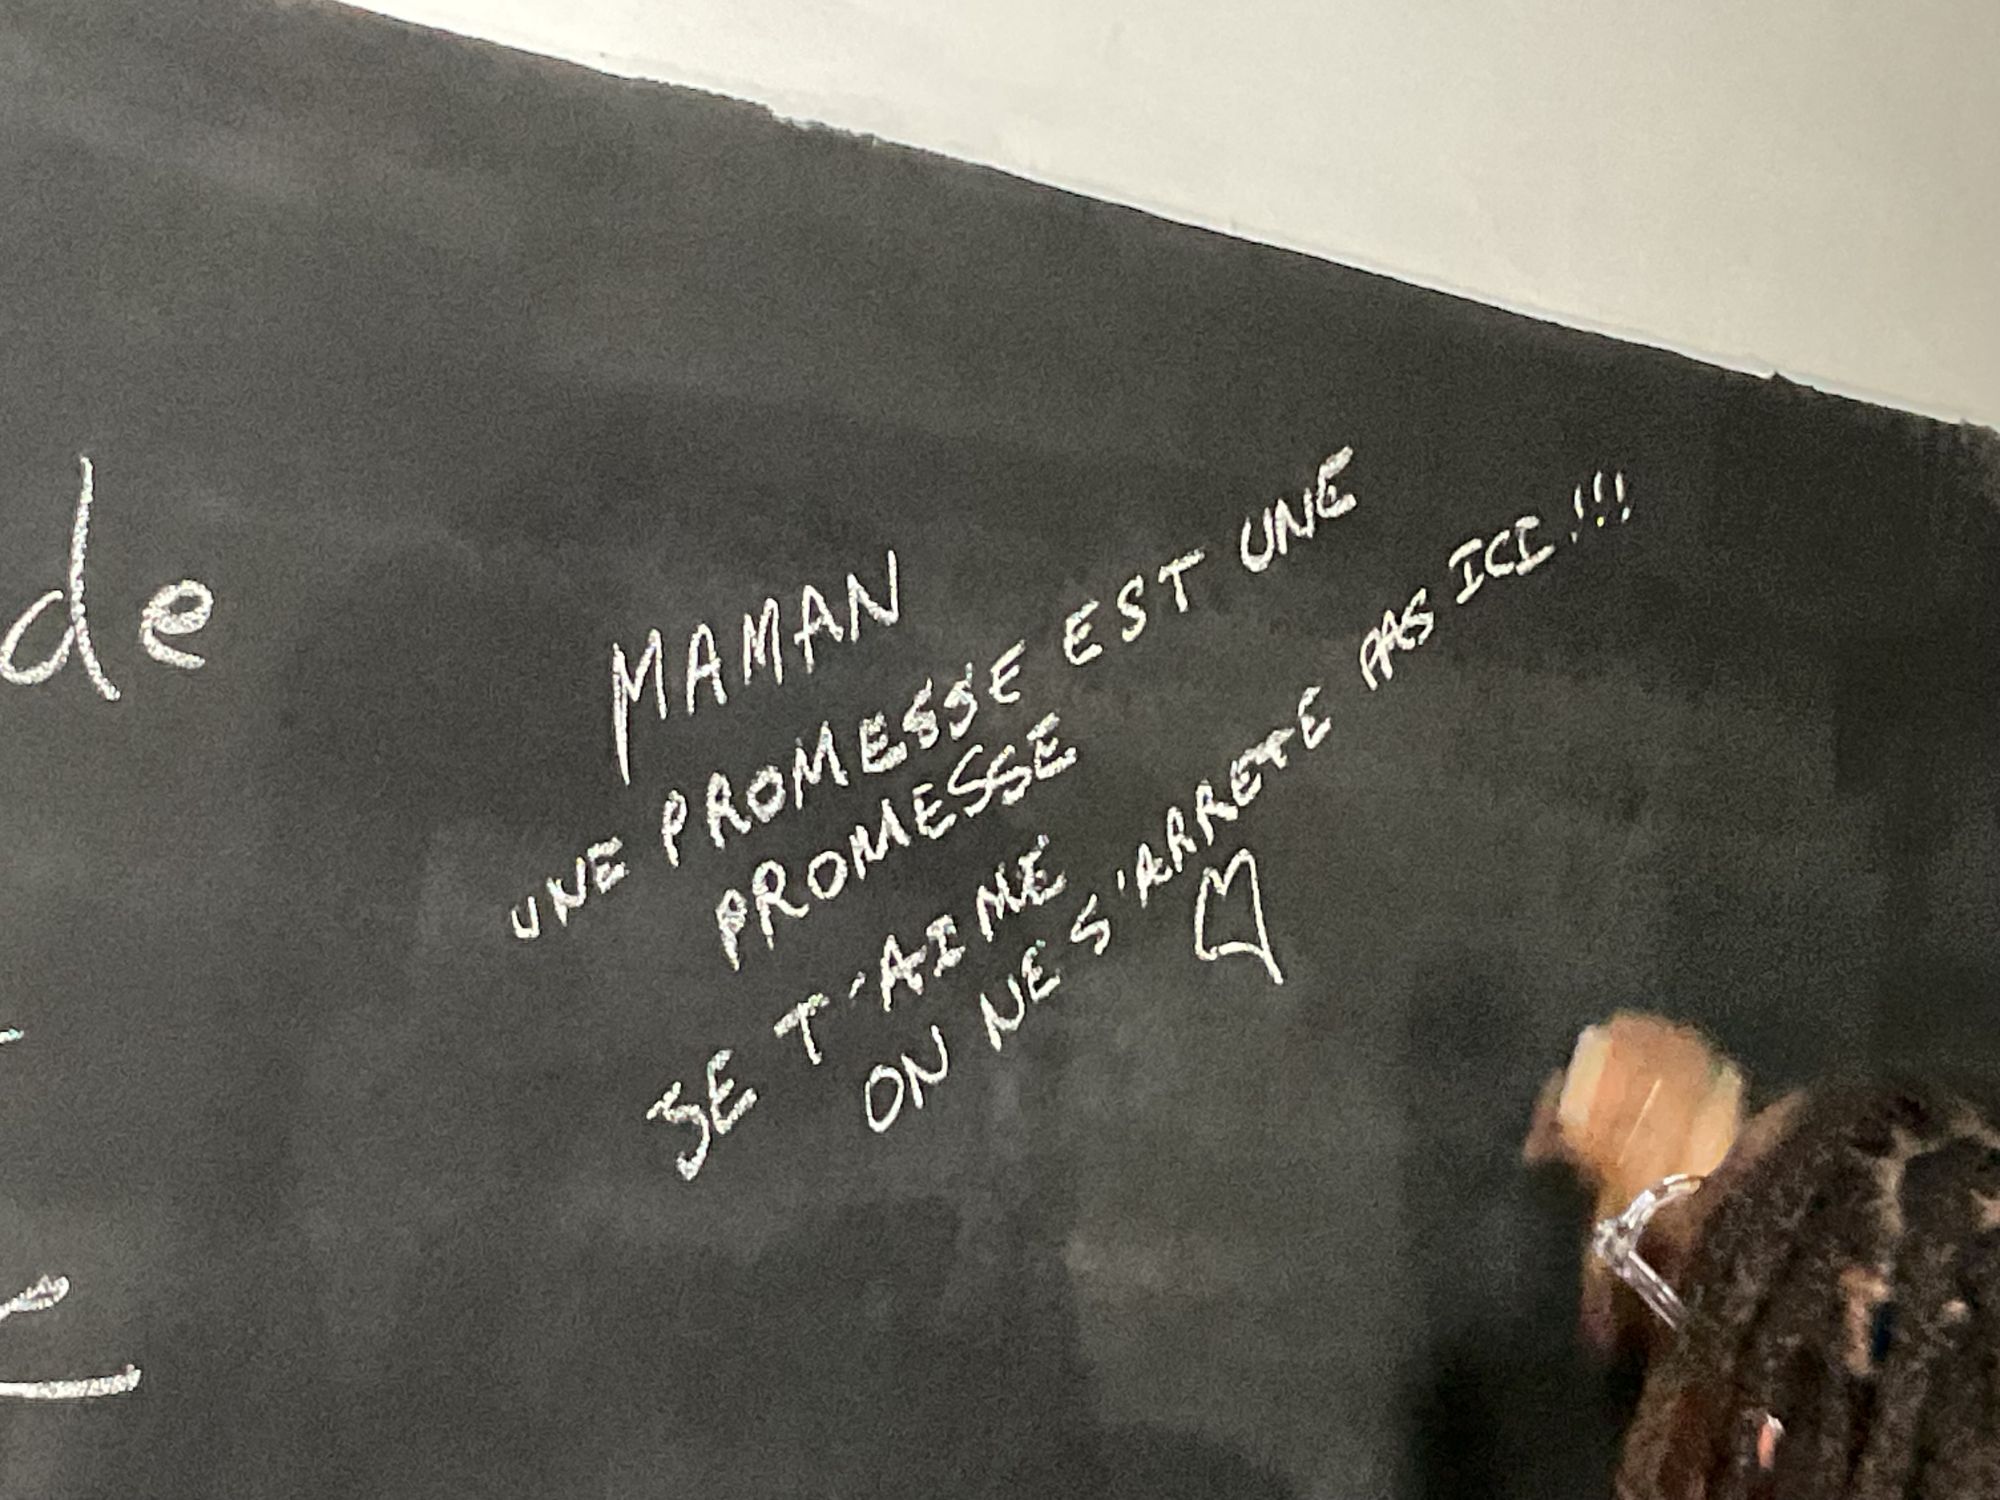 de
MAMAN
UNE PROMESSE EST UNE
PROMESSE
JE T'AIME
ON NE S'ARRETE PAS ICI!!!